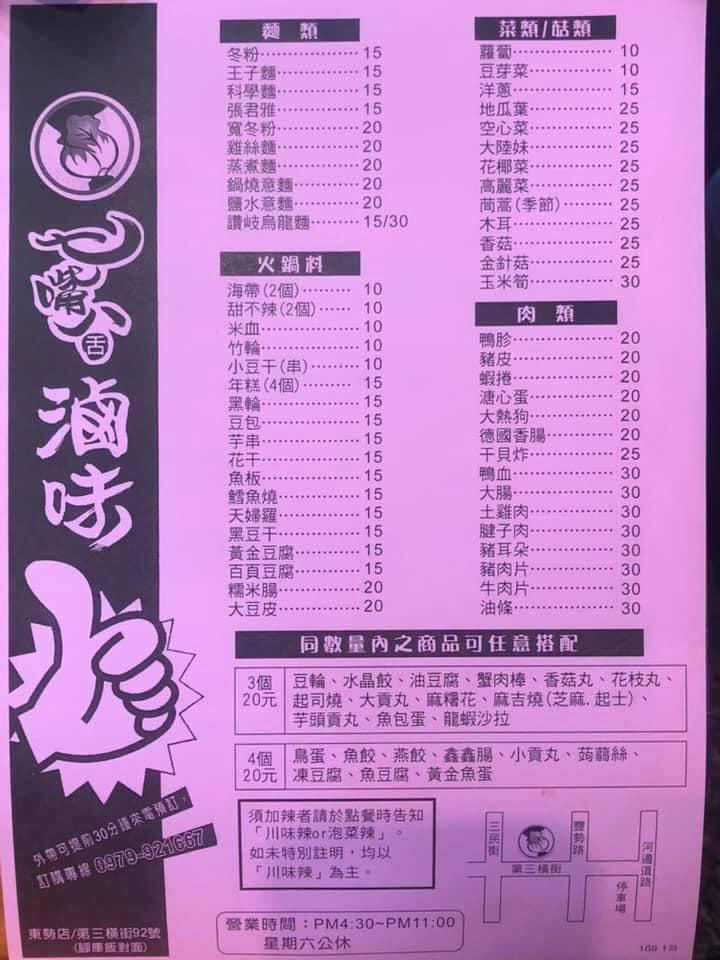 七嘴八舌
滷味
外帶可提前30分鐘來電預訂，
訂購專線 0979-921667
東勢店/第三橫街92號
(腳庫飯對面)
麵類
冬粉 15
王子麵 15
科學麵 15
張君雅 15
寬冬粉 20
雞絲麵 20
蒸煮麵 20
鍋燒意麵 20
鹽水意麵 20
讚岐烏龍麵 15/30
火鍋料
海帶(2個) 10
甜不辣(2個) 10
米血 10
竹輪 10
小豆干(串) 10
年糕(4個) 15
黑輪 15
豆包 15
芋串 15
花干 15
魚板 15
鱈魚燒 15
天婦羅 15
黑豆干 15
黃金豆腐 15
百頁豆腐 15
糯米腸 20
大豆皮 20
菜類/菇類
蘿蔔 10
豆芽菜 10
洋蔥 15
地瓜葉 25
空心菜 25
大陸妹 25
花椰菜 25
高麗菜 25
茼蒿(季節) 25
木耳 25
香菇 25
金針菇 25
玉米筍 30
肉類
鴨胗 20
豬皮 20
蝦捲 20
溏心蛋 20
大熱狗 20
德國香腸 20
干貝炸 25
鴨血 30
大腸 30
土雞肉 30
腱子肉 30
豬耳朵 30
豬肉片 30
牛肉片 30
油條 30
同數量內之商品可任意搭配
3個
20元
豆輪、水晶餃、油豆腐、蟹肉棒、香菇丸、花枝丸、
起司燒、大貢丸、麻糬花、麻吉燒(芝麻.起士)、
芋頭貢丸、魚包蛋、龍蝦沙拉
4個
20元
鳥蛋、魚餃、燕餃、鑫鑫腸、小貢丸、蒟蒻絲、
凍豆腐、魚豆腐、黃金魚蛋
須加辣者請於點餐時告知
「川味辣or泡菜辣」。
如未特別註明，均以
「川味辣」為主。
三民街
豐勢路
河邊道路
第三橫街
停車場
營業時間：PM4:30~PM11:00
星期六公休